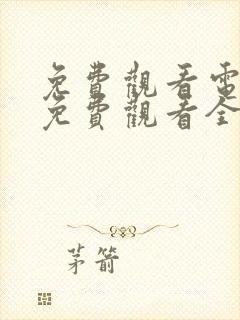 免費觀看電
免費觀看全
茅箭